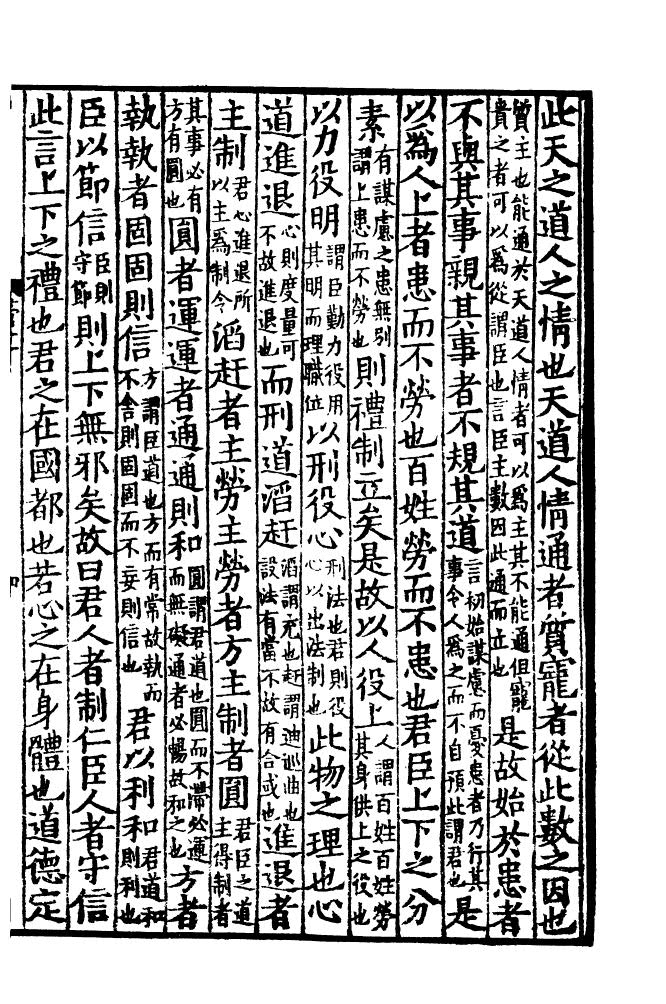 此天之道人之情也天道人情通者質寵者從此數之因也
質主也能通於天道人情者可以爲主其不能通但寵
貴之者可以爲從謂臣也言臣主數因此通而立也
是故始於患者
不與其事親其事者不規其道
言初始謀慮而憂患者乃行其
事令人爲之而不自預此謂君也
是
以爲人上者患而不勞也百姓勞而不患也君臣上下之分
素
有謀慮之患無別
謂上患而不勞也
則禮制立矣是故以人役上
人謂百姓百姓勞
其身供上之役也
以力役明
謂臣勤力役用
其明而理職位
以刑役心
刑法也君則役
心以出法制也
此物之理也心
道進退
心則度量可
不故進退也
而刑道滔赶
滔謂充也赶謂迪巡曲也
設法有當不故有合或也
進退者
主制
君心進退所
以主爲制令
滔赶者主勞主勞者方主制者圓
君臣之道
主得制者
其事必有
方有圓也
圓者運運者通通則和
圓謂君道也圓而不滯必運
而無礙通者必暢故和之也
方者
執執者固固則信
方謂臣道也方而有常故執而
不舍則固固而不妄則信也
君以利和
君道和
和則利也
臣以節信
臣則
守節
則上下無邪矣故曰君人者制仁臣人者守信
此言上下之禮也君之在國都也若心之在身體也道德定